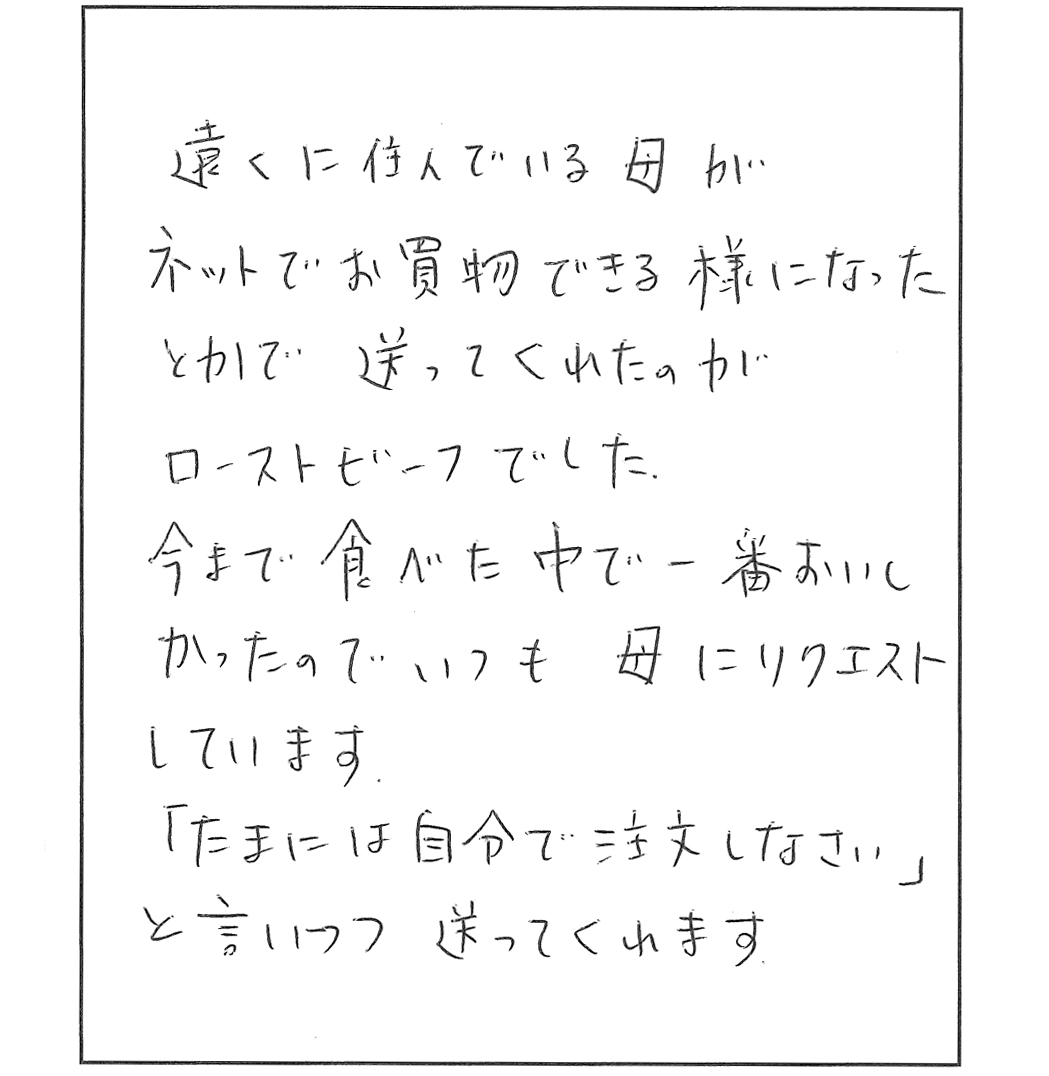 遠くに住んでいる母が
ネットでお買物できる様になった
とかで 送ってくれたのが
ローストビーフでした.
今まで食べた中で一番おいし
かったのでいつも 母にリクエスト
しています.
「たまには自分で注文しなさい」
と言いつつ 送ってくれます.